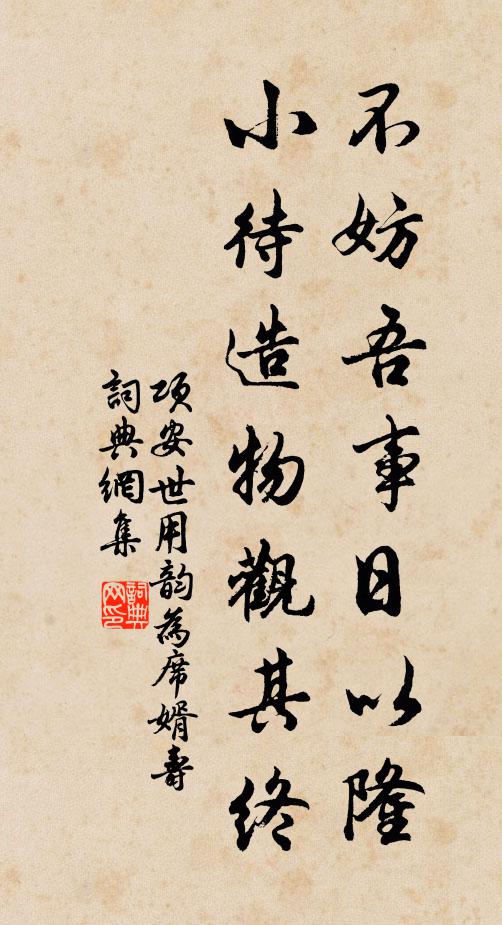 不妨吾事日以隆
小待造物觀其終
項安世用韵為席婿壽
詞典網集
詞典网印